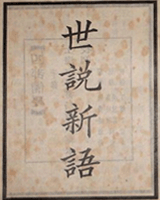 世說新語